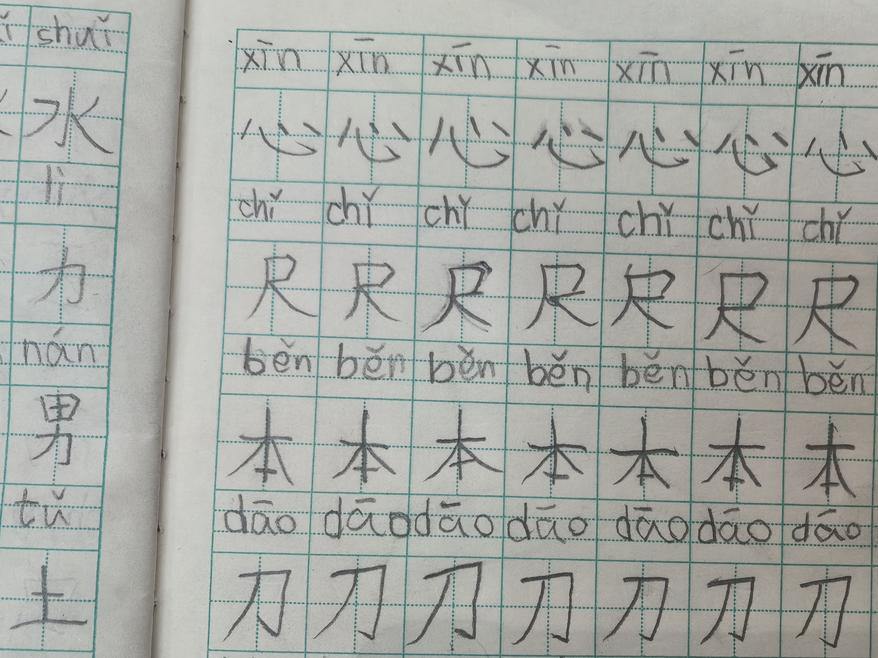 shuǐ
水
lì
力
nán
男
tǔ
土
xīn xīn xīn xīn xīn xīn xīn
心 心 心 心 心 心 心
chǐ chǐ chǐ chǐ chǐ chǐ chǐ
尺 尺 尺 尺 尺 尺 尺
běn běn běn běn běn běn běn
本 本 本 本 本 本 本
dāo dāo dāo dāo dāo dāo dāo
刀 刀 刀 刀 刀 刀 刀